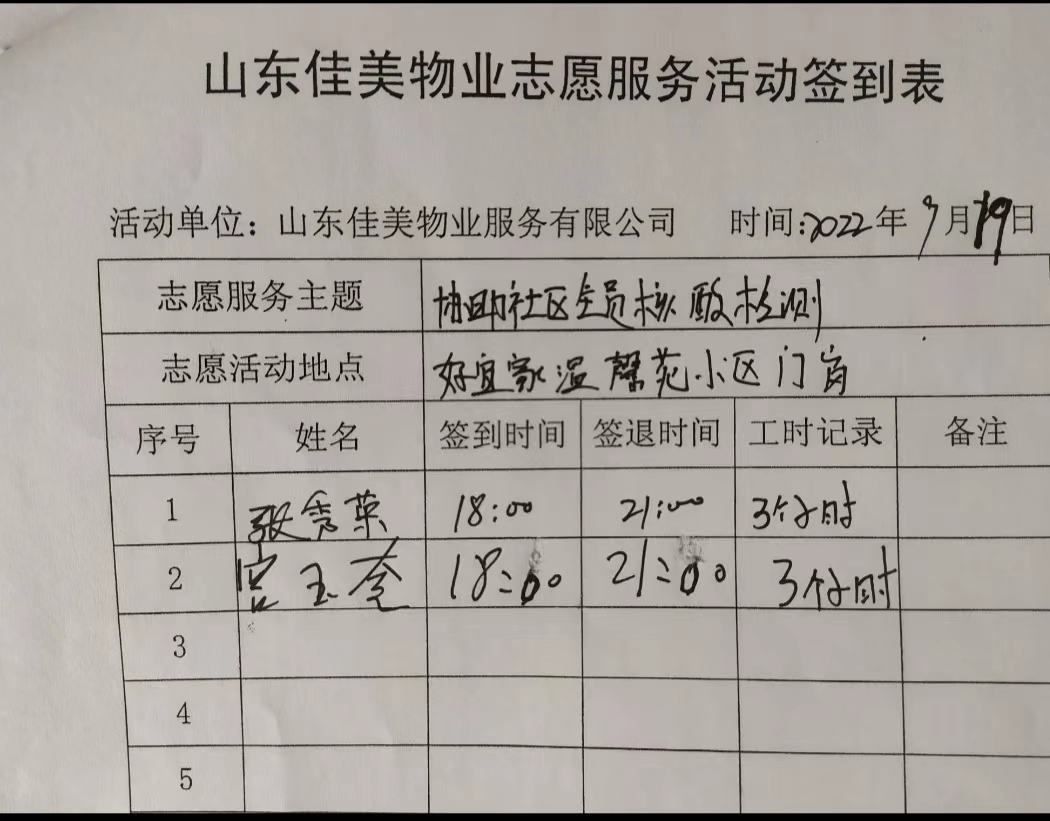 山东佳美物业志愿服务活动签到表
活动单位：山东佳美物业服务有限公司 时间：2022年7月19日
志愿服务主题 协助社区全员核酸检测
志愿活动地点 好宜家温馨苑小区门岗
序号 姓名 签到时间 签退时间 工时记录 备注
1 张秀荣 18:00 21:00 3个小时
2 宫玉奎 18:00 21:00 3个小时
3
4
5